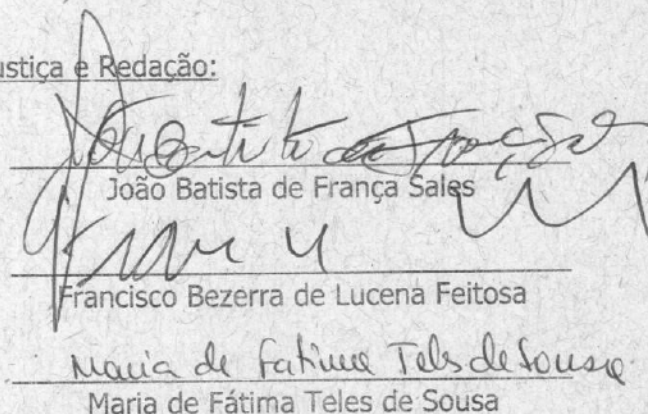 ustiça e Redação:
João Batista de França Sales
Francisco Bezerra de Lucena Feitosa
Maria de Fatima Teles de Sousa
Maria de Fátima Teles de Sousa